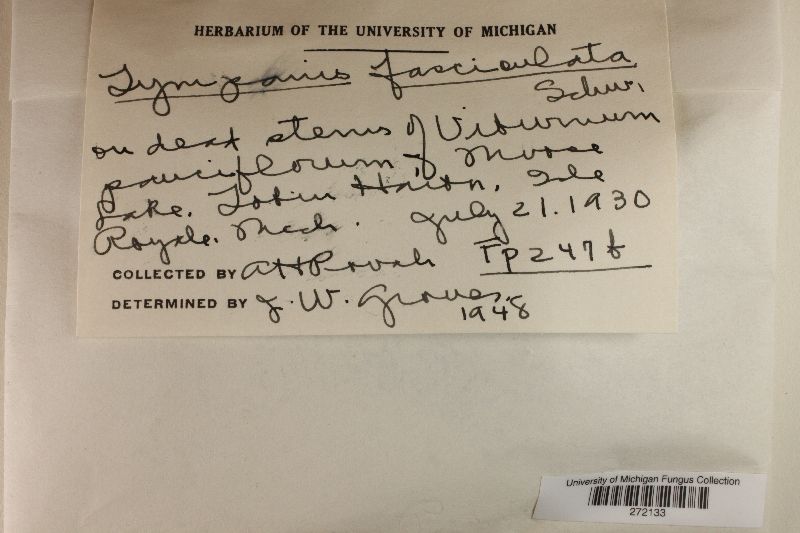 HERBARIUM OF THE UNIVERSITY OF MICHIGAN
Tympanis fasciculata
Schw.
on dead stems of Viburnum
pauciflorum - Moose
Lake, Tobin Harbor, Isle
Royale. Mich. July 21. 1930
COLLECTED BY A H Povah Fp247b
DETERMINED BY J. W. Groves.
1948
University of Michigan Fungus Collection
272133